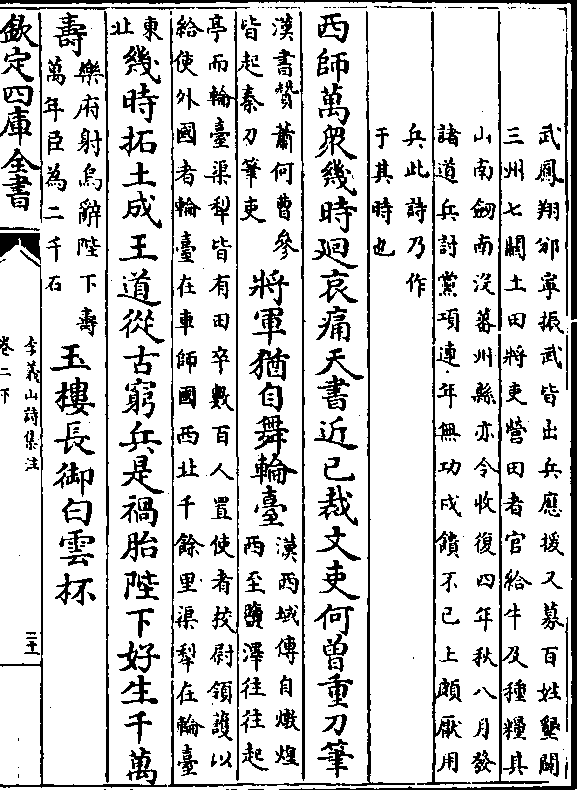 武鳳翔邠寧振武皆出兵應援又募百姓墾闢
三州七關土田將吏營田者官給牛及種糧具
山南劔南沒蕃州縣亦令收復四年秋八月發
諸道兵討黨項連年無功戍饋不已上頗厭用
兵此詩乃作
于其時也
西師萬衆幾時廻哀痛天書近已裁文吏何曾重刀筆
漢書贊蕭何曹參
皆起秦刀筆吏
將軍猶自舞輪臺
漢西域傳自燉煌
西至鹽澤往往起
亭而輪臺渠犁皆有田卒數百人置使者校尉領護以
給使外國者輪臺在車師國西北千餘里渠犁在輪臺
東
北
幾時拓土成王道從古窮兵是禍胎陛下好生千萬
壽
樂府射烏辭陛下壽
萬年臣為二千石
玉樓長御白雲杯
欽定四庫全書
李義山詩集注
卷二下
二十